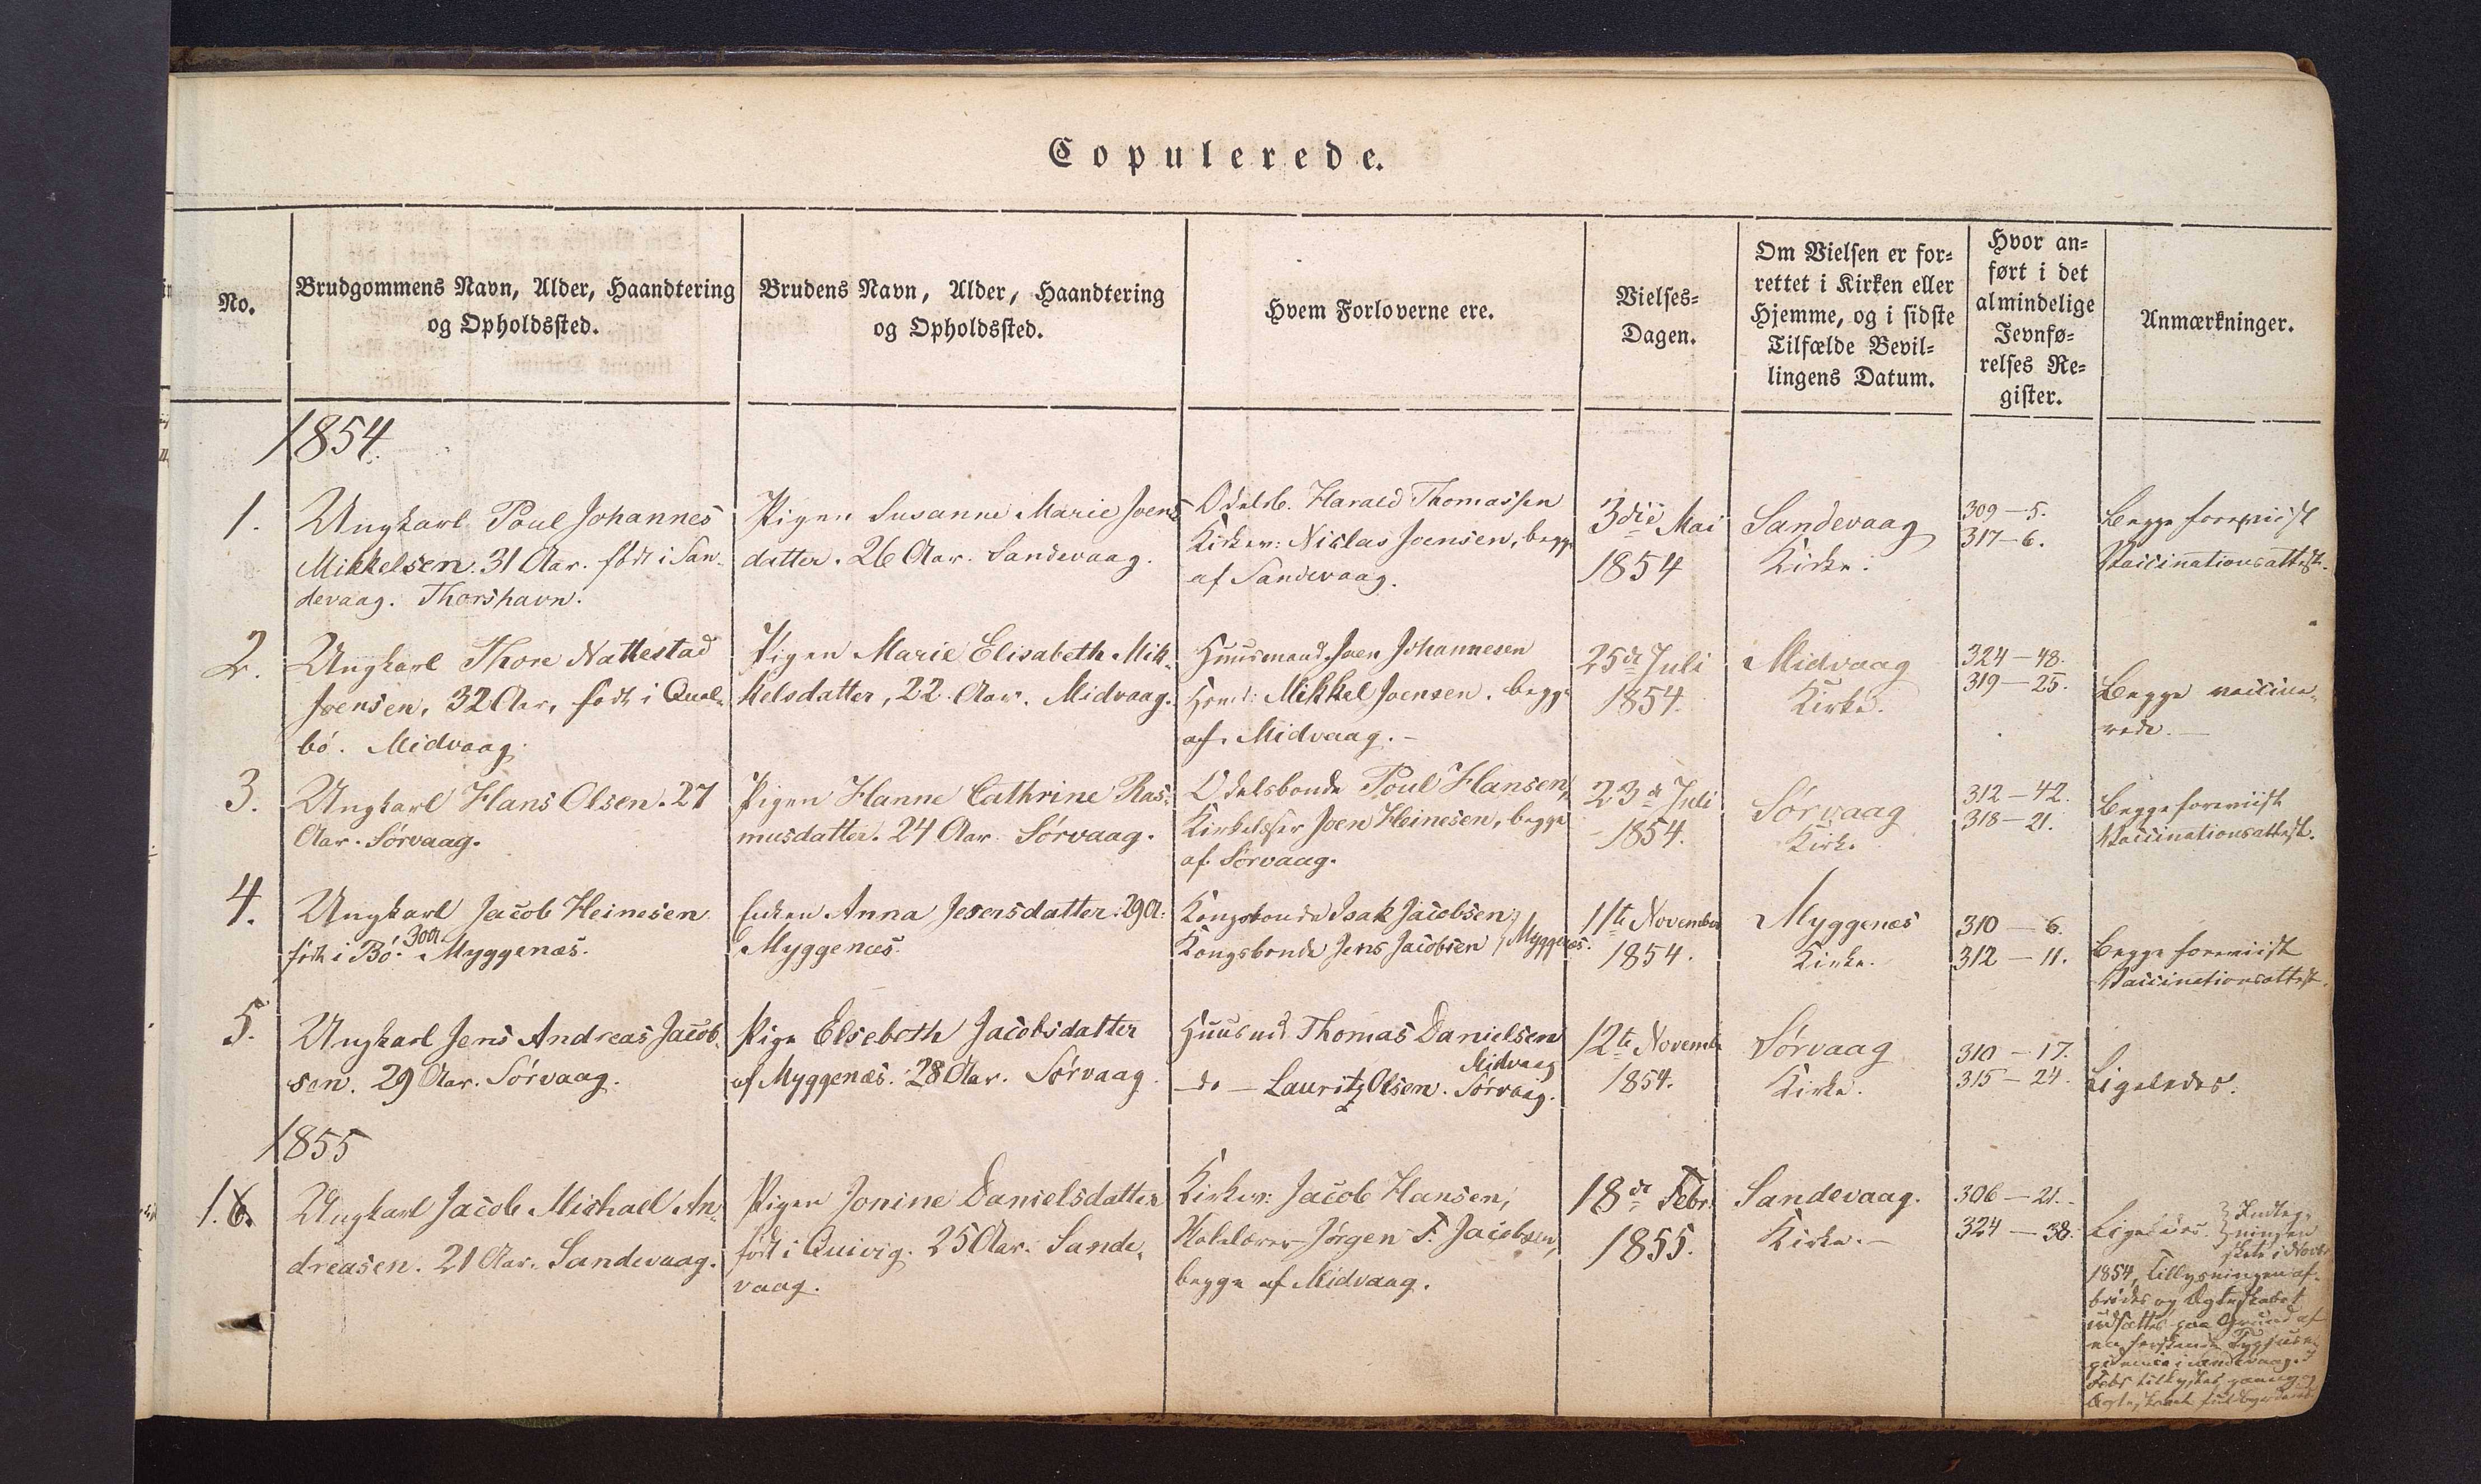 Copulerede.
No.
Brudgommens Navn, Alder, Haandtering
og Opholdssted.
Brudens Navn, Alder, Haandtering
og Opholdssted.
Hvem Forloverne ere.
Vielses-
Dagen.
Om Vielsen er for-
rettet i Kirken eller
Hjemme, og i sidste
Tilfælde Bevil-
lingens Datum.
Hvor an-
ført i det
almindelige
Jevnfø-
relses Re-
gister.
Anmærkninger.
1854.
1.
Ungkarl Poul Johannes
Mikkelsen. 31 Aar. född i San-
devaag. Thorshavn.
Pigen Susanne Marie Joens
datter. 26 Aar. Sandevaag.
Odelsb. Harald Thomassen
Kirkev: Niclas Joensen, begge
af Sandevaag.
3die Mai
1854
Sandevaag
Kirke.
309-5.
317-6.
Begge foreviist
Vaccinationsattest.
2.
Ungkarl Thore Nattestad
Joensen, 32 Aar, född i Qual-
bö. Midvaag.
Pigen Marie Elisabeth Mik-
kelsdatter, 22 Aar. Midvaag.
Huusmand Joen Johannesen
Mikkel Joensen. begge
af Midvaag. -
25de Juli
1854.
Midvaag
Kirke.
324-48.
319-25.
Begge vaccine-
rede. -
3.
Ungkarl Hans Olsen. 27
Aar. Sörvaag.
Pigen Hanne Cathrine Ras-
musdatter. 24 Aar. Sörvaag.
Odelsbonde Poul Hansen,
Joen Heinesen, begge
af Sörvaag.
23de Juli
1854.
Sörvaag
Kirke
312-42.
318-21.
Begge foreviist
Vaccinationsattest.
4.
Ungkarl Jacob Heinesen
född i Bö. 30 A. Myggenæs.
Enken Anna Jesersdatter. 29 A.
Myggenæs.
Kongsbonde Isak Jacobsen
Kongsbonde Jens Jacobsen } Myggenæs.
11te November
1854.
Myggenæs
Kirke.
310-6.
312-11.
Begge foreviist
Vaccinationsattest.
5.
Ungkarl Jens Andreas Jacob-
sen. 29 Aar. Sörvaag.
Pige Elsebeth Jacobsdatter
af Myggenæs. 28 Aar. Sörvaag.
Huusmd Thomas Danielsen
Midvaag
- do - Lauritz Olsen. Sörvaag.
12te Novemb
1854.
Sörvaag
Kirke.
310-17.
315-24.
Ligeledes.
1855
1. 6.
Ungkarl Jacob Michael An-
dreasen. 21 Aar. Sandevaag.
Pigen Jonine Danielsdatter
född i Quivig. 25 Aar. Sande-
vaag.
Kirkev: Jacob Hansen,
Jørgen F. Jacobsen,
begge af Midvaag.
18de Febr.
1855.
Sandevaag.
Kirke. -
306-21.
324-38.
Ligeledes.
1854, Tillysningen af-
brödes og Ægteskabet
udsattes paa Grund af
en herskende Typhuse-
pidemie i Sandevaag.